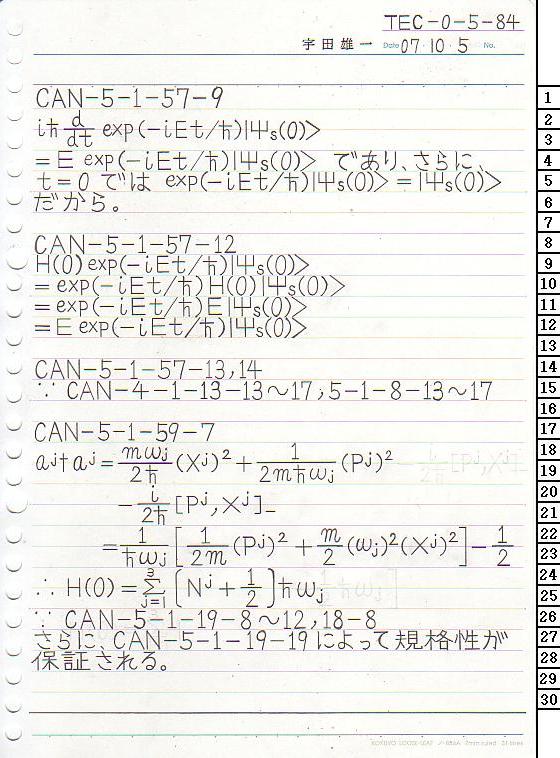 TEC-0-5-84
宇田雄一 Date 07・10・5 No.
CAN-5-1-57-9
iℏ d/dt exp(-iEt/ℏ)|Ψs(0)>
= E exp(-iEt/ℏ)|Ψs(0)> であり、さらに、
t=0 では exp(-iEt/ℏ)|Ψs(0)> = |Ψs(0)>
だから。
CAN-5-1-57-12
H(0) exp(-iEt/ℏ)|Ψs(0)>
= exp(-iEt/ℏ) H(0)|Ψs(0)>
= exp(-iEt/ℏ) E|Ψs(0)>
= E exp(-iEt/ℏ)|Ψs(0)>
CAN-5-1-57-13,14
∵ CAN-4-1-13-13〜17,5-1-8-13〜17
CAN-5-1-59-7
aʲ†aʲ = mωj/2ℏ (Xʲ)² + 1/2mℏωj (Pʲ)²
- i/2ℏ [Pʲ, Xʲ]₋
= 1/ℏωj [1/2m (Pʲ)² + m/2 (ωj)²(Xʲ)²] - 1/2
∴ H(0) = Σ_{j=1}^{3} [Nʲ + 1/2] ℏωj
∵ CAN-5-1-19-8〜12,18-8
さらに、CAN-5-1-19-19によって規格性が
保証される。
1
2
3
4
5
6
7
8
9
10
11
12
13
14
15
16
17
18
19
20
21
22
23
24
25
26
27
28
29
30
KOKUYO LOOSE-LEAF